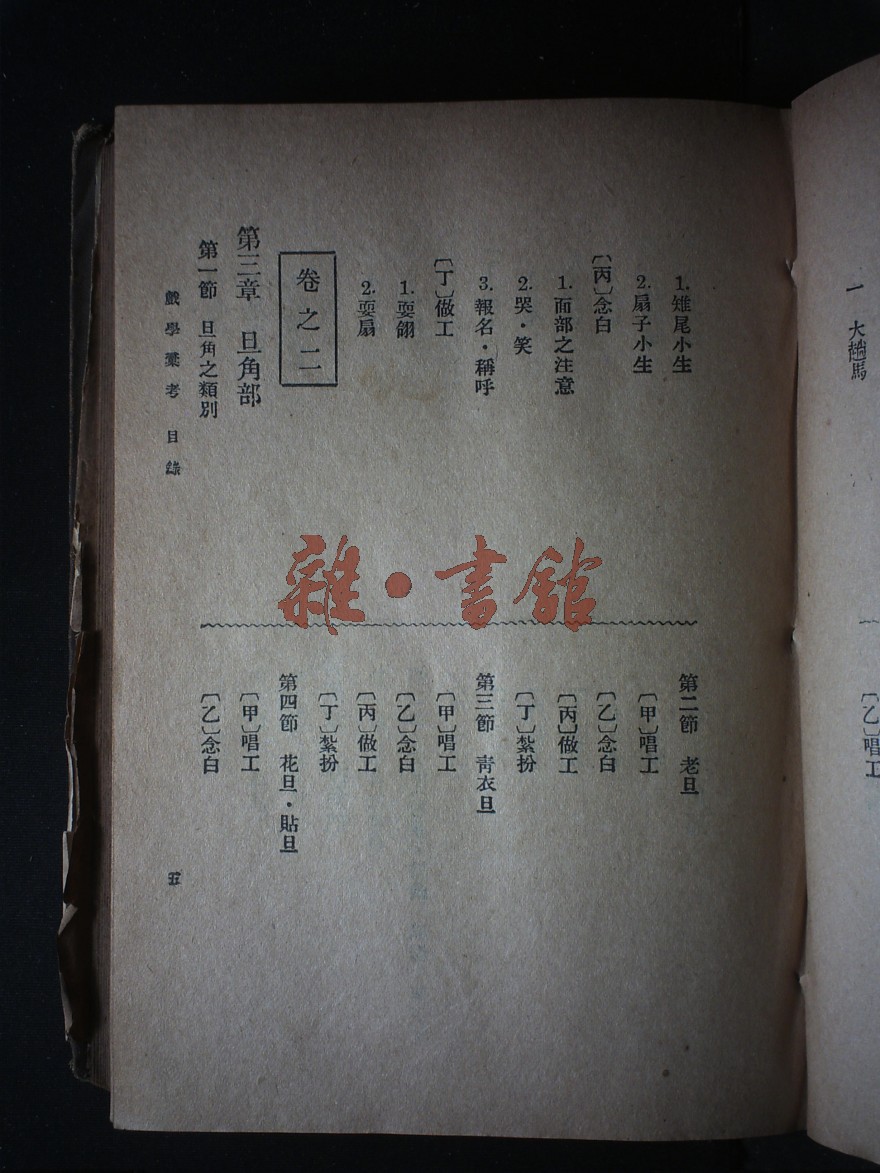 一 大趟馬
〔乙〕唱工
1. 雉尾小生
2. 扇子小生
〔丙〕念白
1. 面部之注意
2. 哭・笑
3. 報名・稱呼
〔丁〕做工
1. 耍翎
2. 耍扇
卷之二
第三章 旦角部
第一節 旦角之類別
第二節 老旦
〔甲〕唱工
〔乙〕念白
〔丙〕做工
〔丁〕紮扮
第三節 靑衣旦
〔甲〕唱工
〔乙〕念白
〔丙〕做工
〔丁〕紮扮
第四節 花旦・貼旦
〔甲〕唱工
〔乙〕念白
戲學彙考 目錄
五
雜・書館